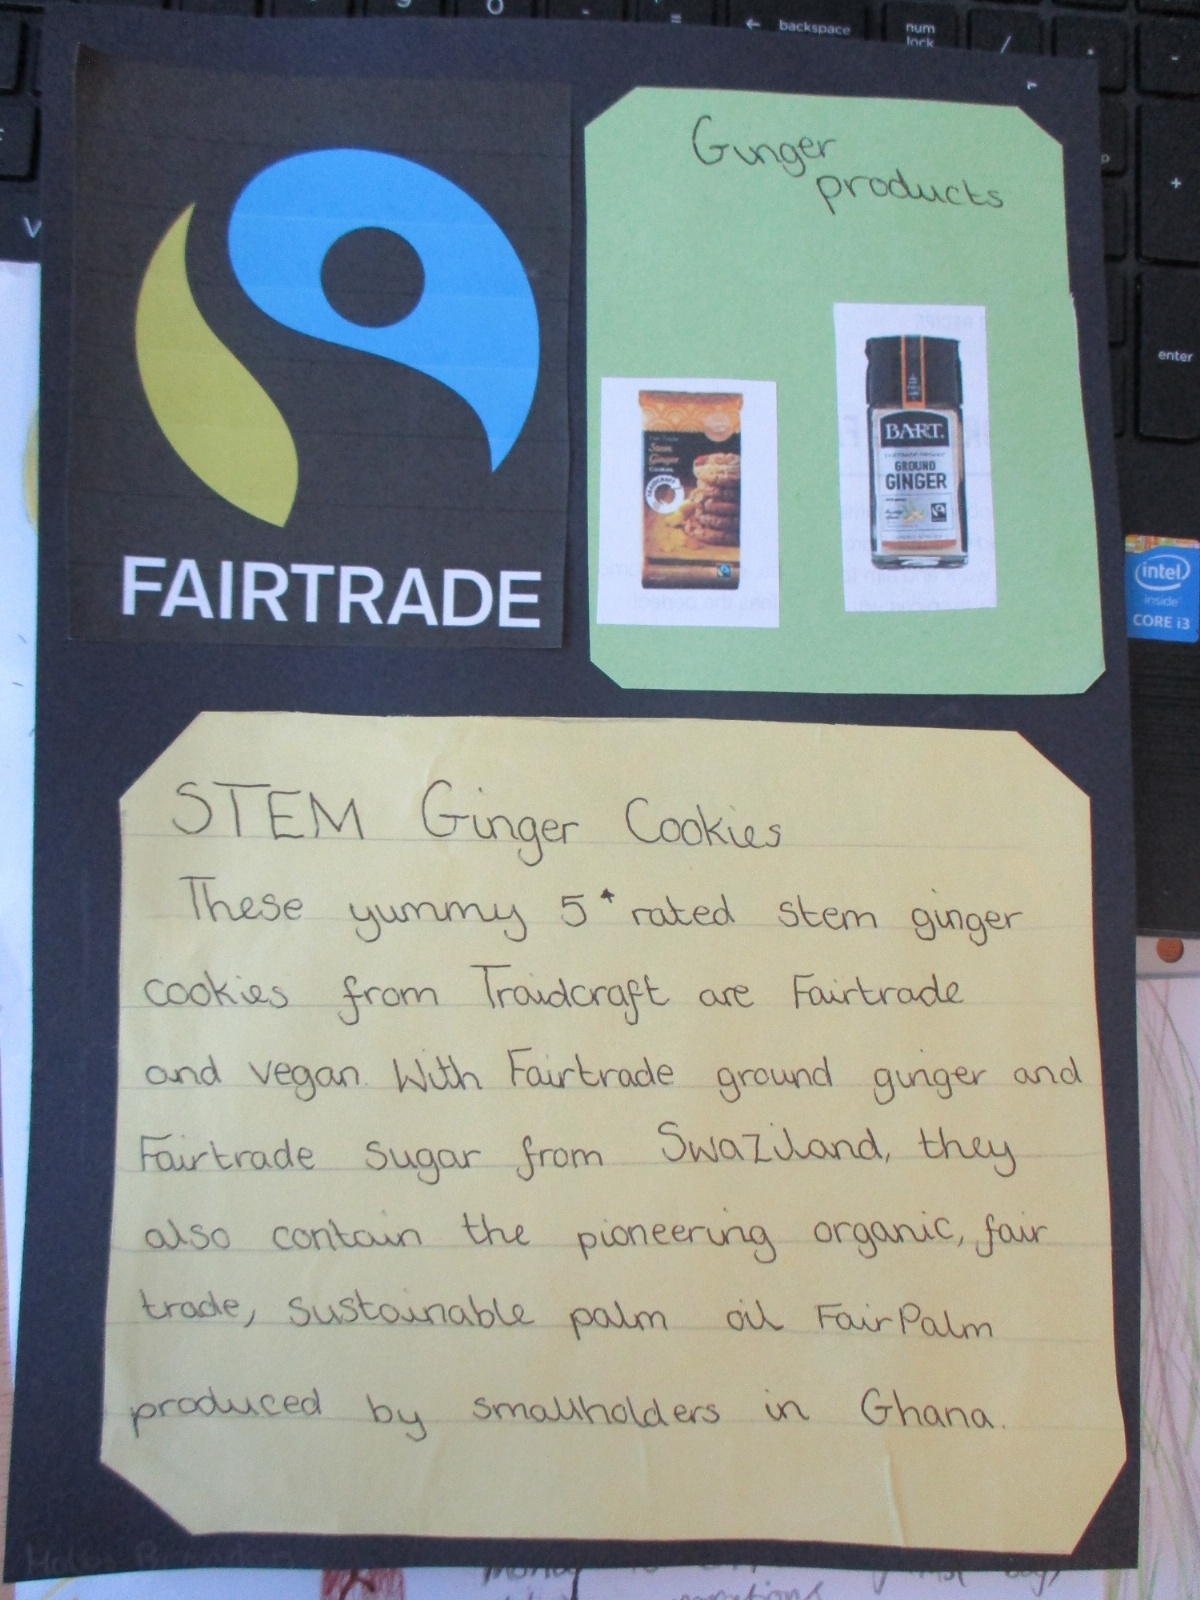 backspace
num
lock
enter
FAIRTRADE
Ginger
products
Stem
Ginger
BART.
GROUND
GINGER
intel
inside
CORE i3
STEM Ginger Cookies
These yummy 5* rated stem ginger
cookies from Traidcraft are Fairtrade
and vegan. With Fairtrade ground ginger and
Fairtrade sugar from Swaziland, they
also contain the pioneering organic, fair
trade, sustainable palm oil FairPalm
produced by smallholders in Ghana.